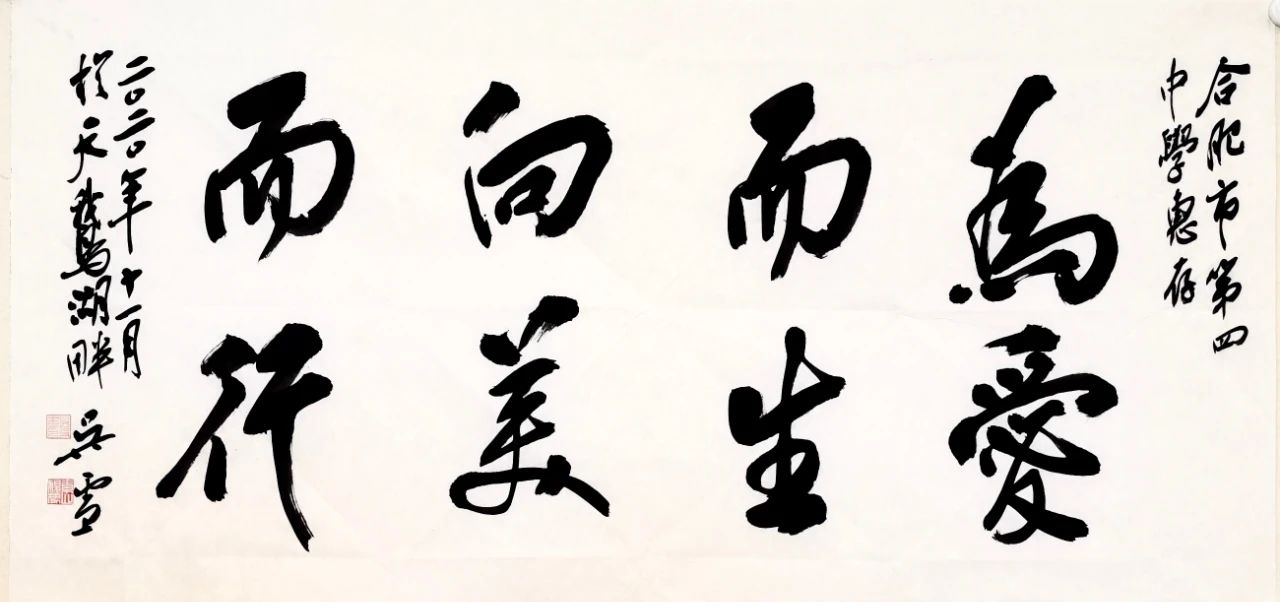 合肥市第四
中學惠存
為愛
而生
向美
而行
二〇二〇年十一月
於天鵞湖畔
吳雪